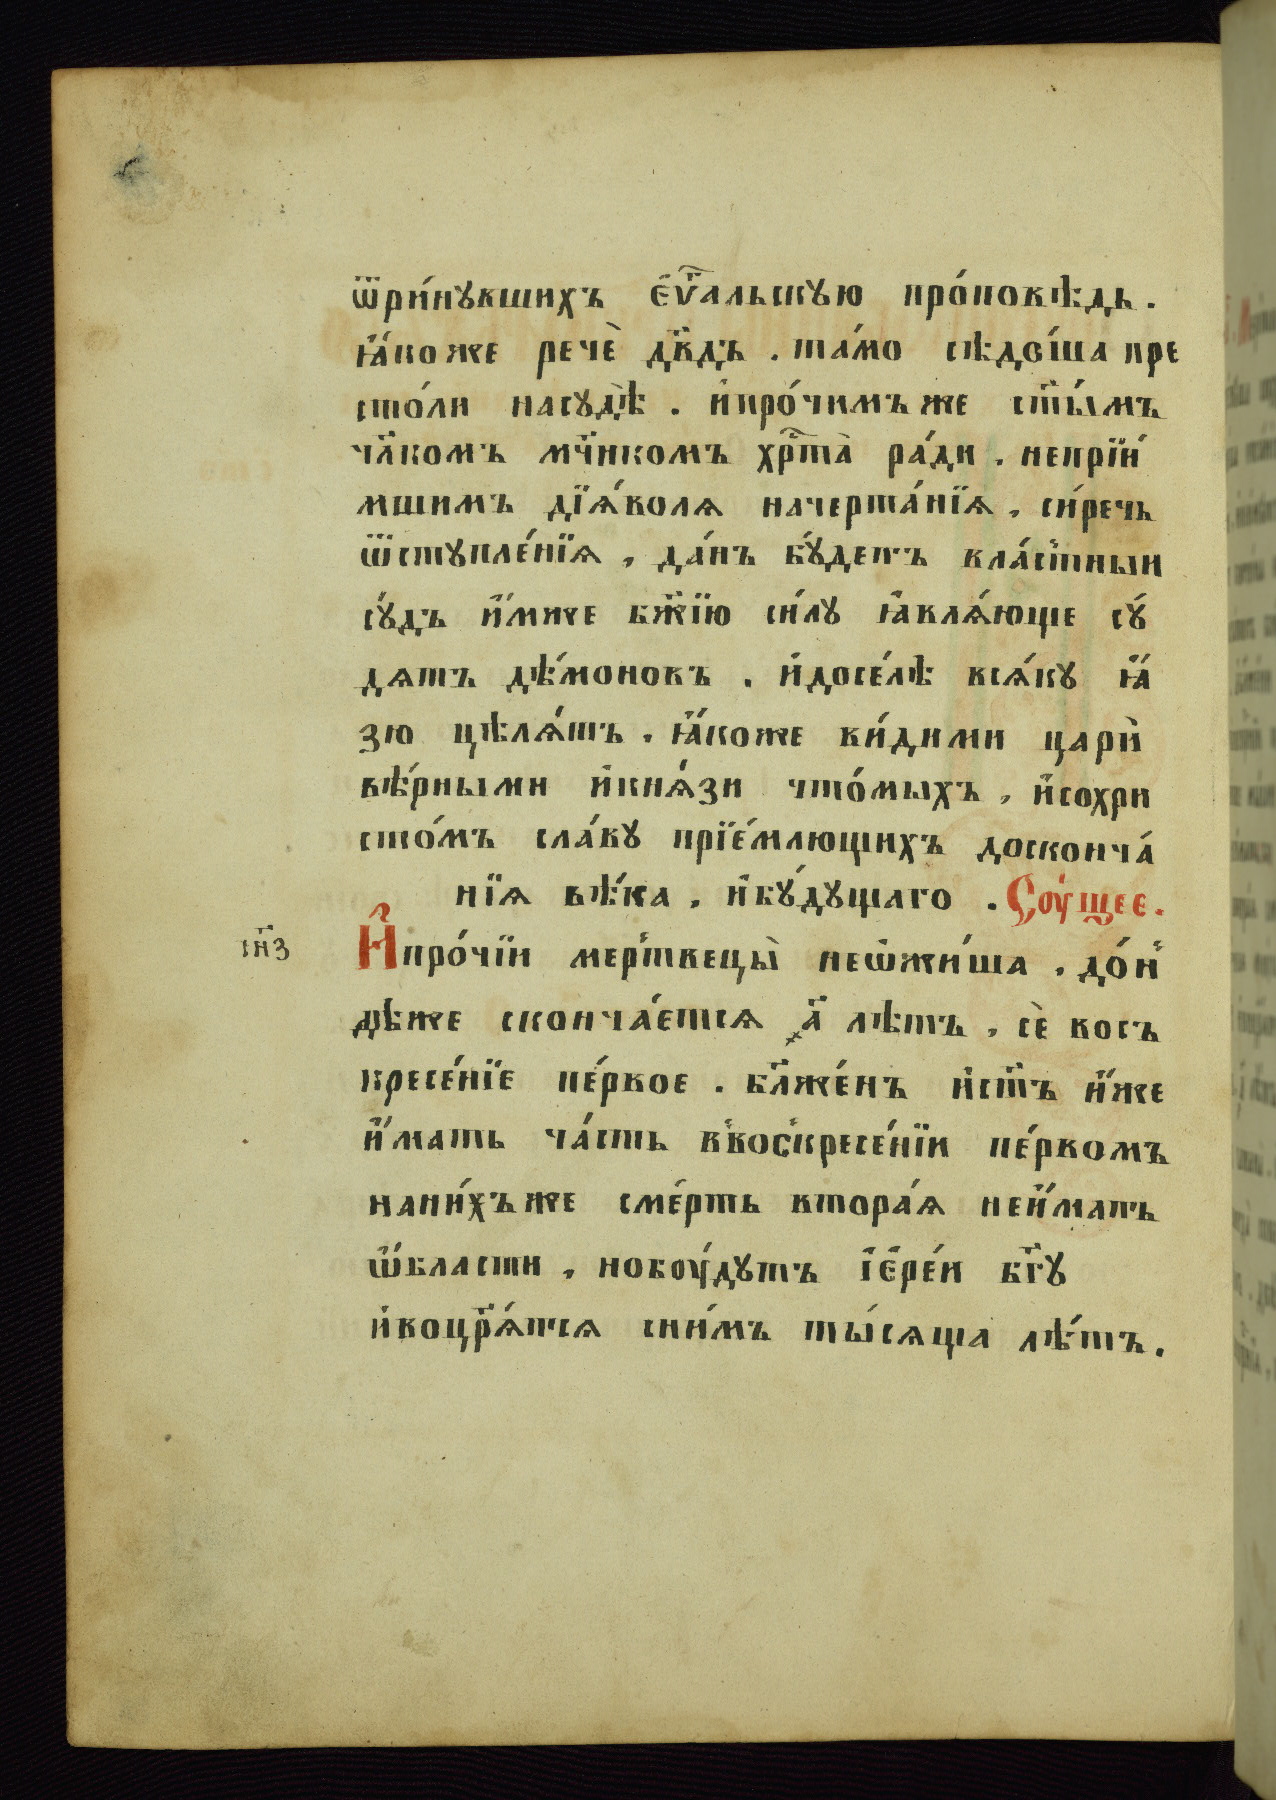 ѿри́нꙋвшихъ є҆ѵⷢ҇альскꙋю про́повѣдь.
ꙗ҆́коже речѐ дв҃дъ. та́мо сѣдо́ша пре
сто́ли насꙋдѣ̀. и҆про́чимъже ст҃ы́мъ
чл҃комъ мч҃нкомъ хрⷭ҇та̀ ра́ди. непрїи́
мшимъ дїѧ́волѧ начерта́нїѧ, си́речь
ѿстꙋпле́нїѧ, да́нъ бꙋ́детъ вла́стныи
сꙋ́дъ и҆́миже бж҃їю си́лꙋ ꙗ҆влѧ́юще сꙋ́
дѧтъ де́моновъ. и҆досе́лѣ всѧ́кꙋ ꙗ҆́
зю цѣлѧ́тъ. ꙗ҆́коже ви́дими царѝ
вѣ́рными и҆кнѧ́зи что́мыхъ, и҆сохри
сто́мъ сла́вꙋ прїе́млющихъ досконча́
нїѧ вѣ́ка, и҆бꙋ́дꙋщаго. Сꙋ́щее.
сн҃з И҆про́чїи мертвецы̀ неѡ҆жи́ша, до́н
дѣже сконча́етсѧ ҂а҃ лѣтъ, сѐ вось
кресе́нїе пе́рвое. бл҃же́нъ и҆ст҃ъ и҆́же
и҆́мать ча́сть ввоскресе́нїи пе́рвомъ
нани́хъже сме́рть втора́ѧ неи́мать
ѡ҆́бласти, нобоу́дꙋтъ і҆є҆ре́и бг҃ꙋ
и҆воцр҃ѧ́тсѧ сни́мъ ты́сѧща лѣ́тъ.